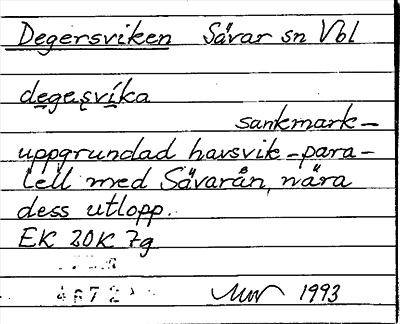 Degersviken Sävar sn Vbl
degeșvíka
sankmark-
uppgrundad havsvik - para-
lell med Sävarån, nära
dess utlopp.
EK 20K 7g
4672
1993